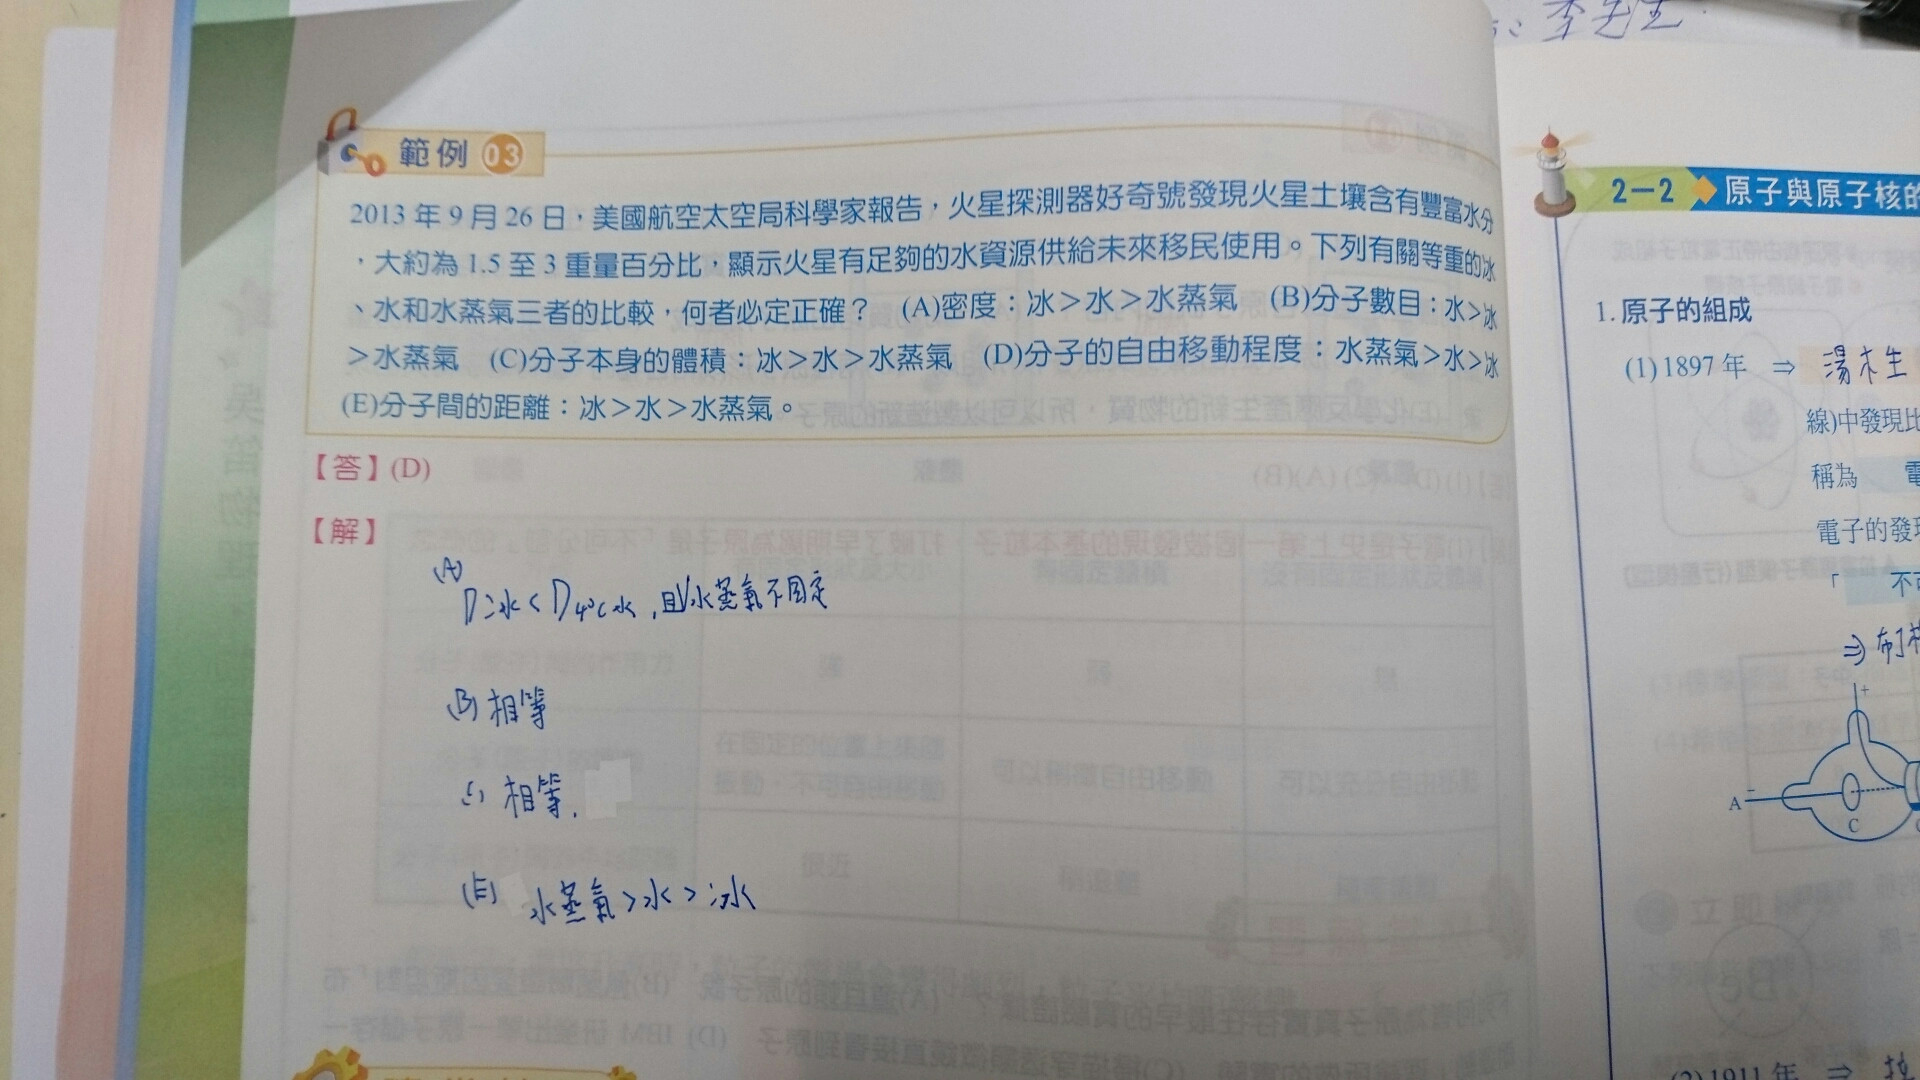 李先生
範例 03
2013 年 9 月 26 日，美國航空太空局科學家報告，火星探測器好奇號發現火星土壤含有豐富水分
，大約為 1.5 至 3 重量百分比，顯示火星有足夠的水資源供給未來移民使用。下列有關等重的冰
、水和水蒸氣三者的比較，何者必定正確？ (A)密度：冰＞水＞水蒸氣 (B)分子數目：水＞冰
＞水蒸氣 (C)分子本身的體積：冰＞水＞水蒸氣 (D)分子的自由移動程度：水蒸氣＞水＞冰
(E)分子間的距離：冰＞水＞水蒸氣。
【答】(D)
【解】
(A) D冰 < D4°C水，且水蒸氣不固定
(B) 相等
(C) 相等.
(E) 水蒸氣 > 水 > 冰
2－2 原子與原子核的
1. 原子的組成
(1) 1897 年 ⇒ 湯木生
線)中發現比
稱為 電
電子的發現
「 不可
⇒ 布
+
A
C
(2) 1911 年 ⇒ 拉